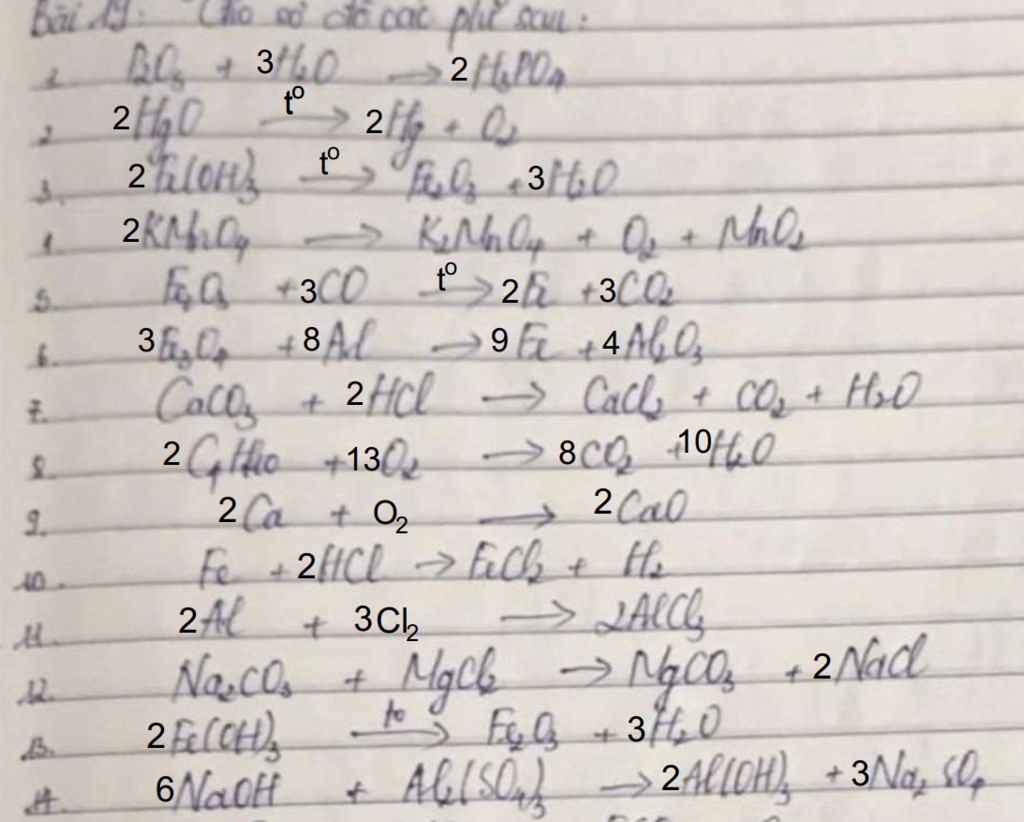 Bài 19: Cho sơ đồ các phư sau:
1. P2O5 + 3H2O → 2H3PO4
2. 2HgO t° → 2Hg + O2
3. 2Fe(OH)3 t° → Fe2O3 + 3H2O
4. 2KMnO4 → K2MnO4 + O2 + MnO2
5. Fe2O3 + 3CO t° → 2Fe + 3CO2
6. 3Fe3O4 + 8Al → 9Fe + 4Al2O3
7. CaCO3 + 2HCl → CaCl2 + CO2 + H2O
8. 2C4H10 + 13O2 → 8CO2 + 10H2O
9. 2Ca + O2 → 2CaO
10. Fe + 2HCl → FeCl2 + H2
11. 2Al + 3Cl2 → 2AlCl3
12. Na2CO3 + MgCl2 → MgCO3 + 2NaCl
13. 2Fe(OH)3 to → Fe2O3 + 3H2O
14. 6NaOH + Al2(SO4)3 → 2Al(OH)3 + 3Na2SO4